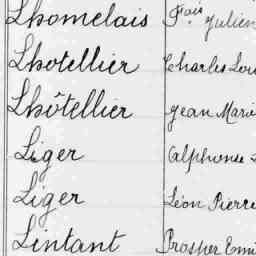 Lhomelais Fois Julien
Lhotellier Charles Lou
Lhôtellier Jean Marie
Liger Alphonse
Liger Léon Pierre
Lintant Prosper Emi